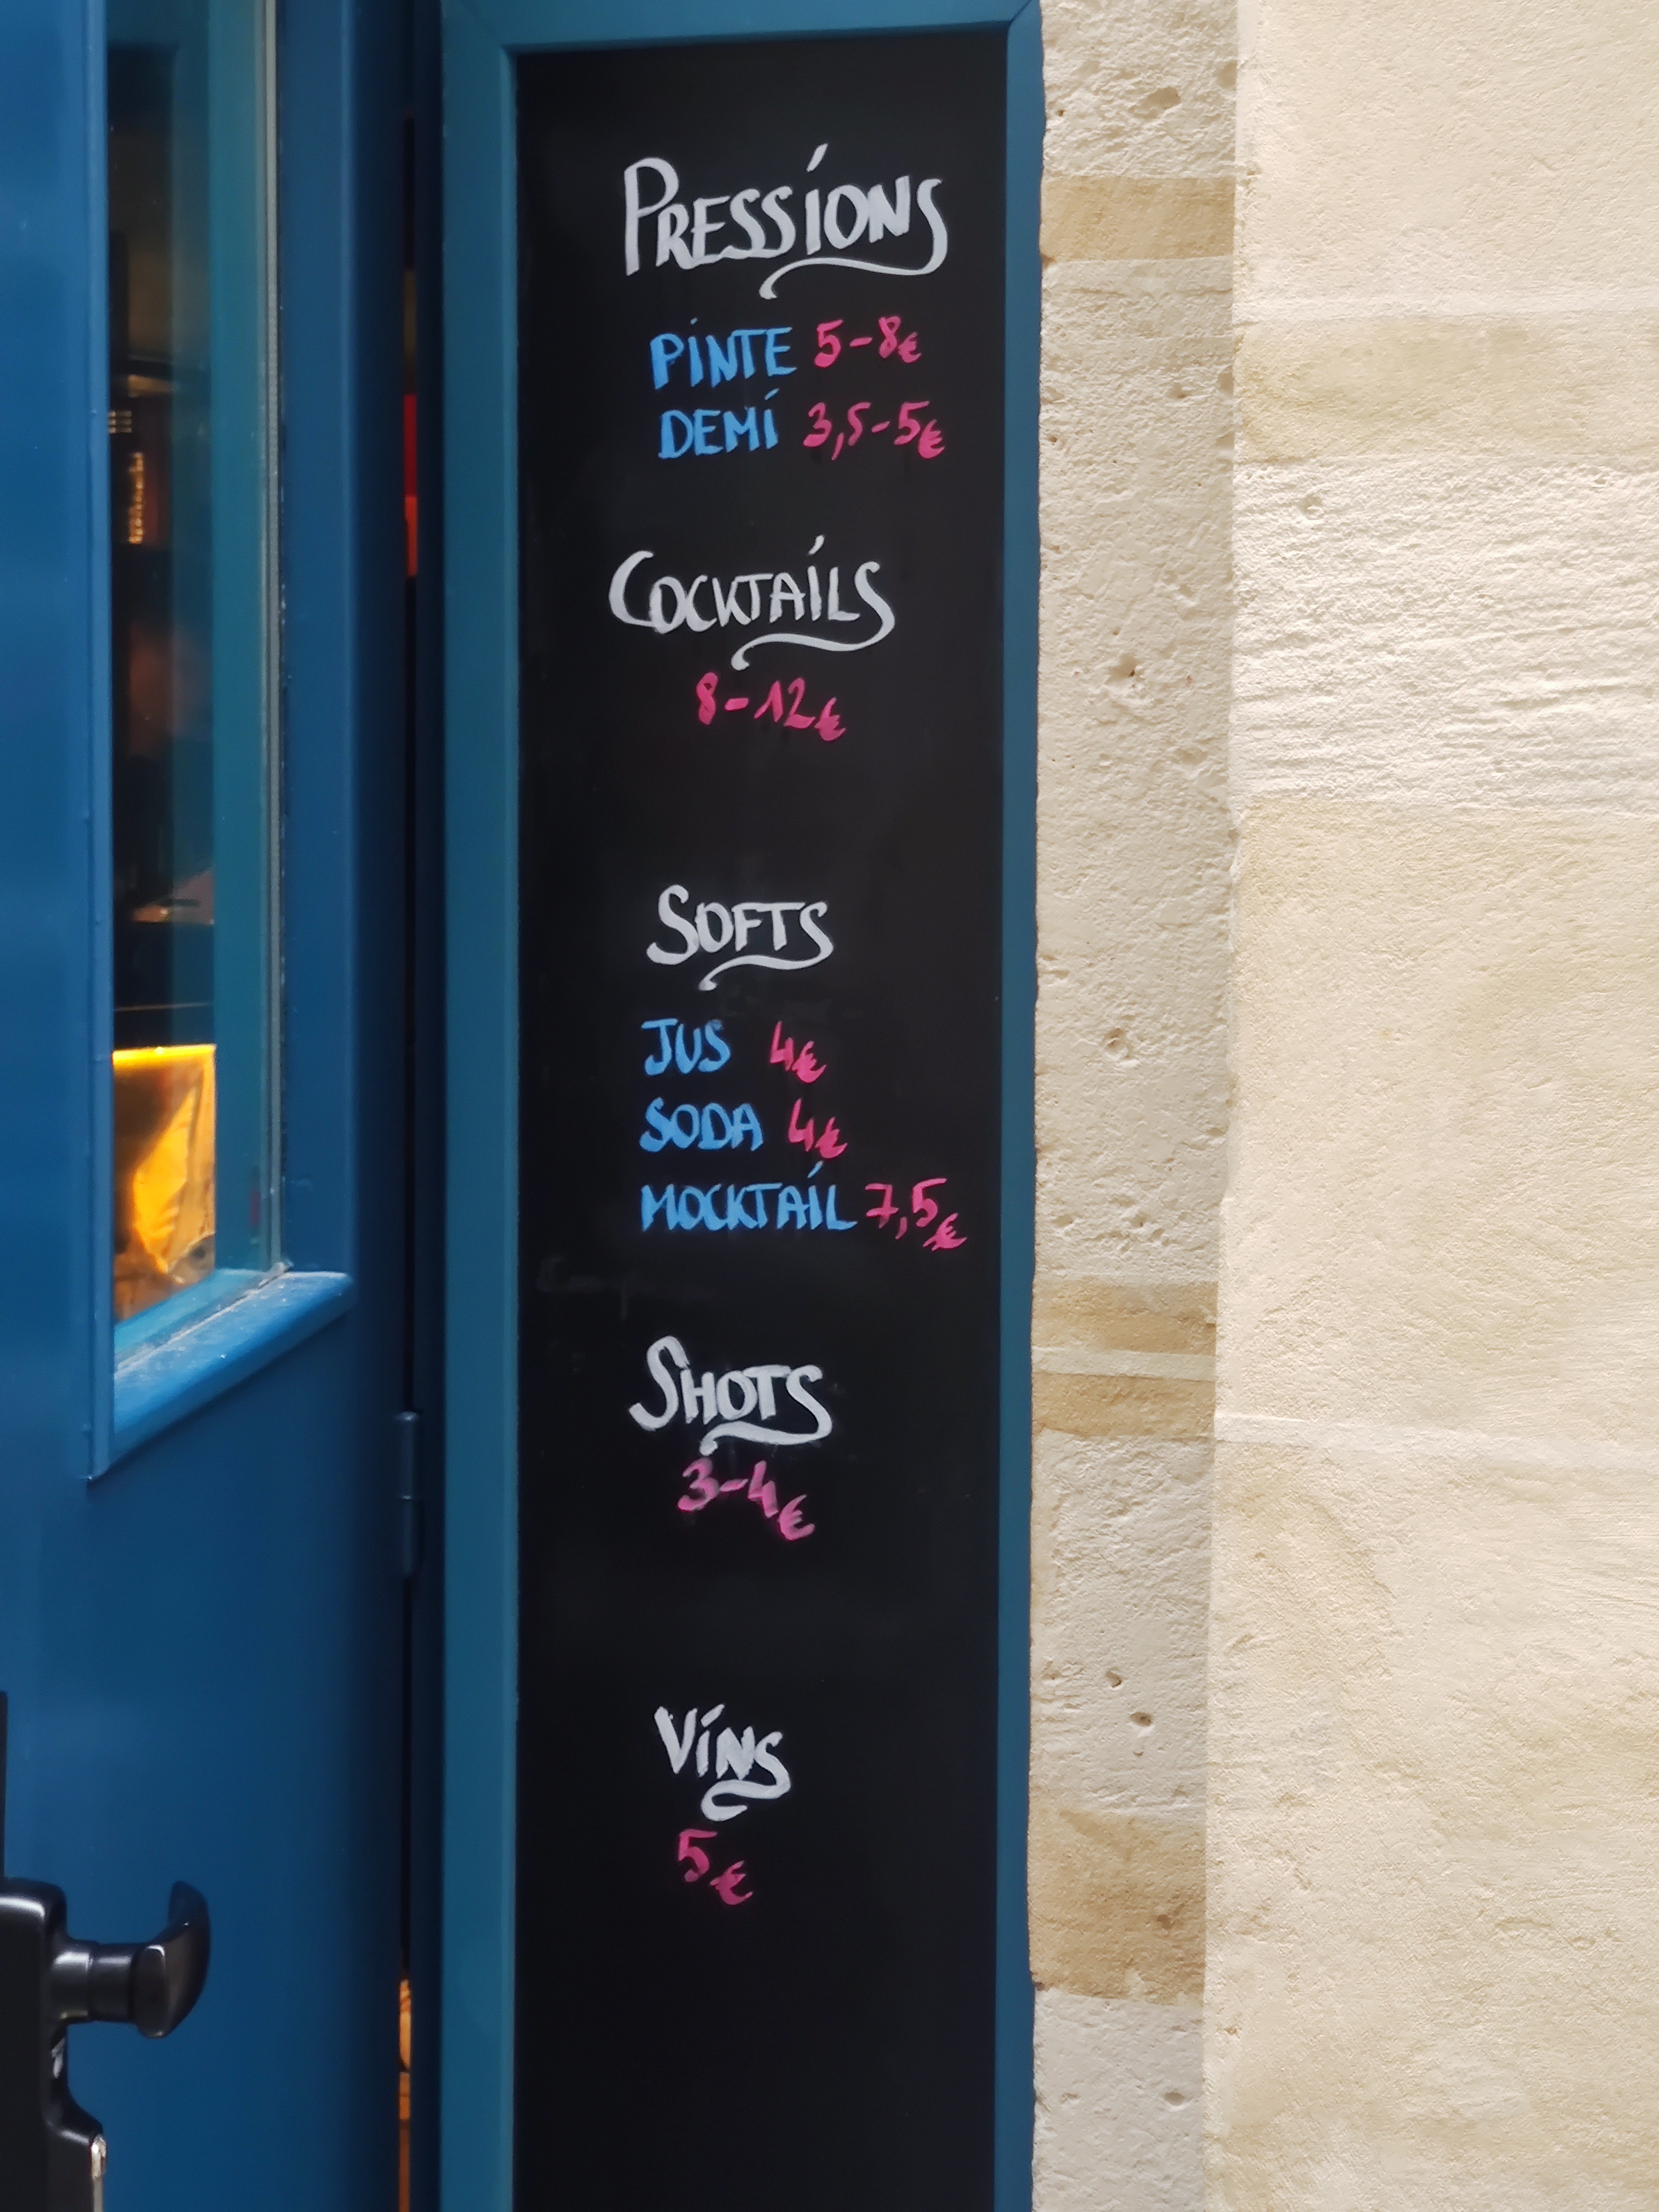 PRESSIONS
PINTE 5-8€
DEMI 3,5-5€
COCKTAILS
8-12€
SOFTS
JUS 4€
SODA 4€
MOCKTAIL 7,5€
SHOTS
3-4€
VINS
5€